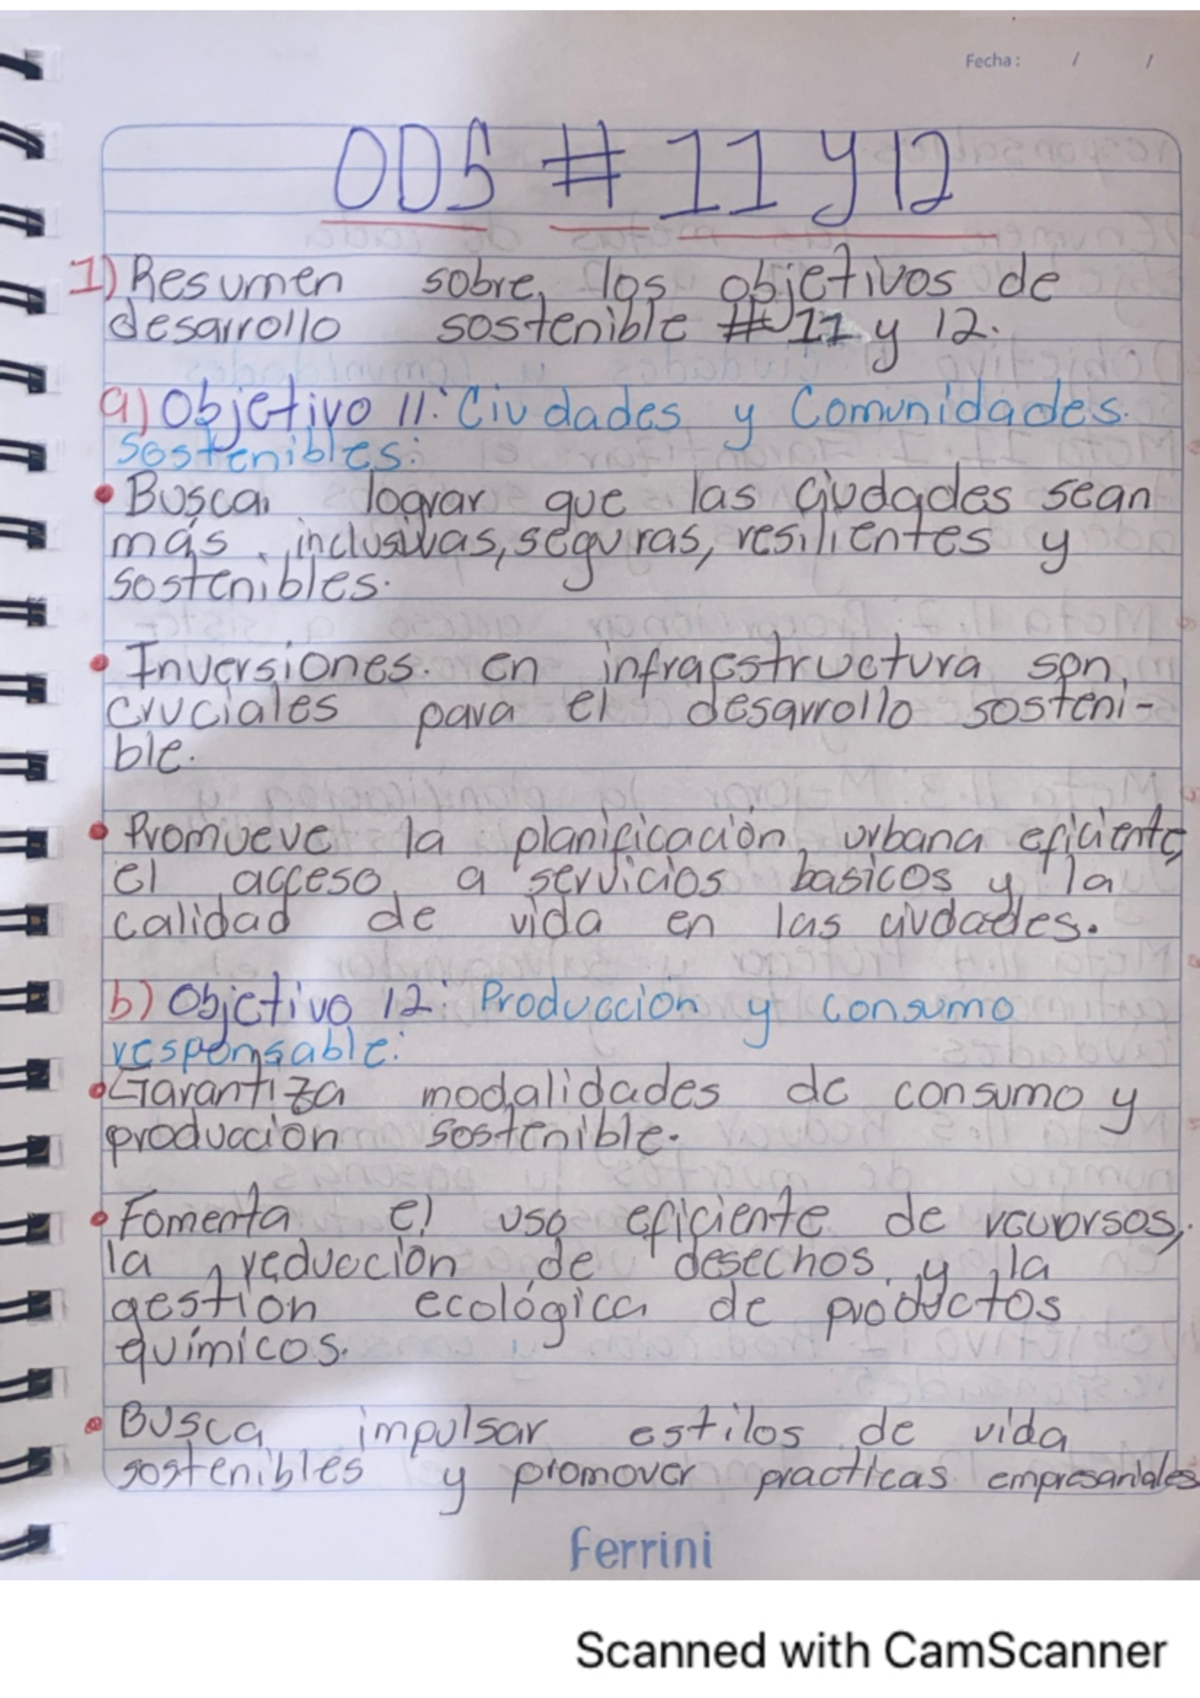 Fecha: / /
ODS # 11 y 12
1) Resumen sobre los objetivos de
desarrollo sostenible # 11 y 12.
a) Objetivo 11: Ciudades y Comunidades.
Sostenibles:
• Busca lograr que las ciudades sean
más inclusivas, seguras, resilientes y
sostenibles.
• Inversiones en infraestructura son
cruciales para el desarrollo sosteni-
ble.
• Promueve la planificación urbana eficiente,
el acceso a servicios basicos y la
calidad de vida en las ciudades.
b) Objetivo 12: Producción y consumo
responsable:
• Garantiza modalidades de consumo y
produccion sostenible.
• Fomenta el uso eficiente de recursos,
la reducción de desechos y la
gestion ecológica de productos
químicos.
• Busca impulsar estilos de vida
sostenibles y promover practicas empresariales
Ferrini
Scanned with CamScanner